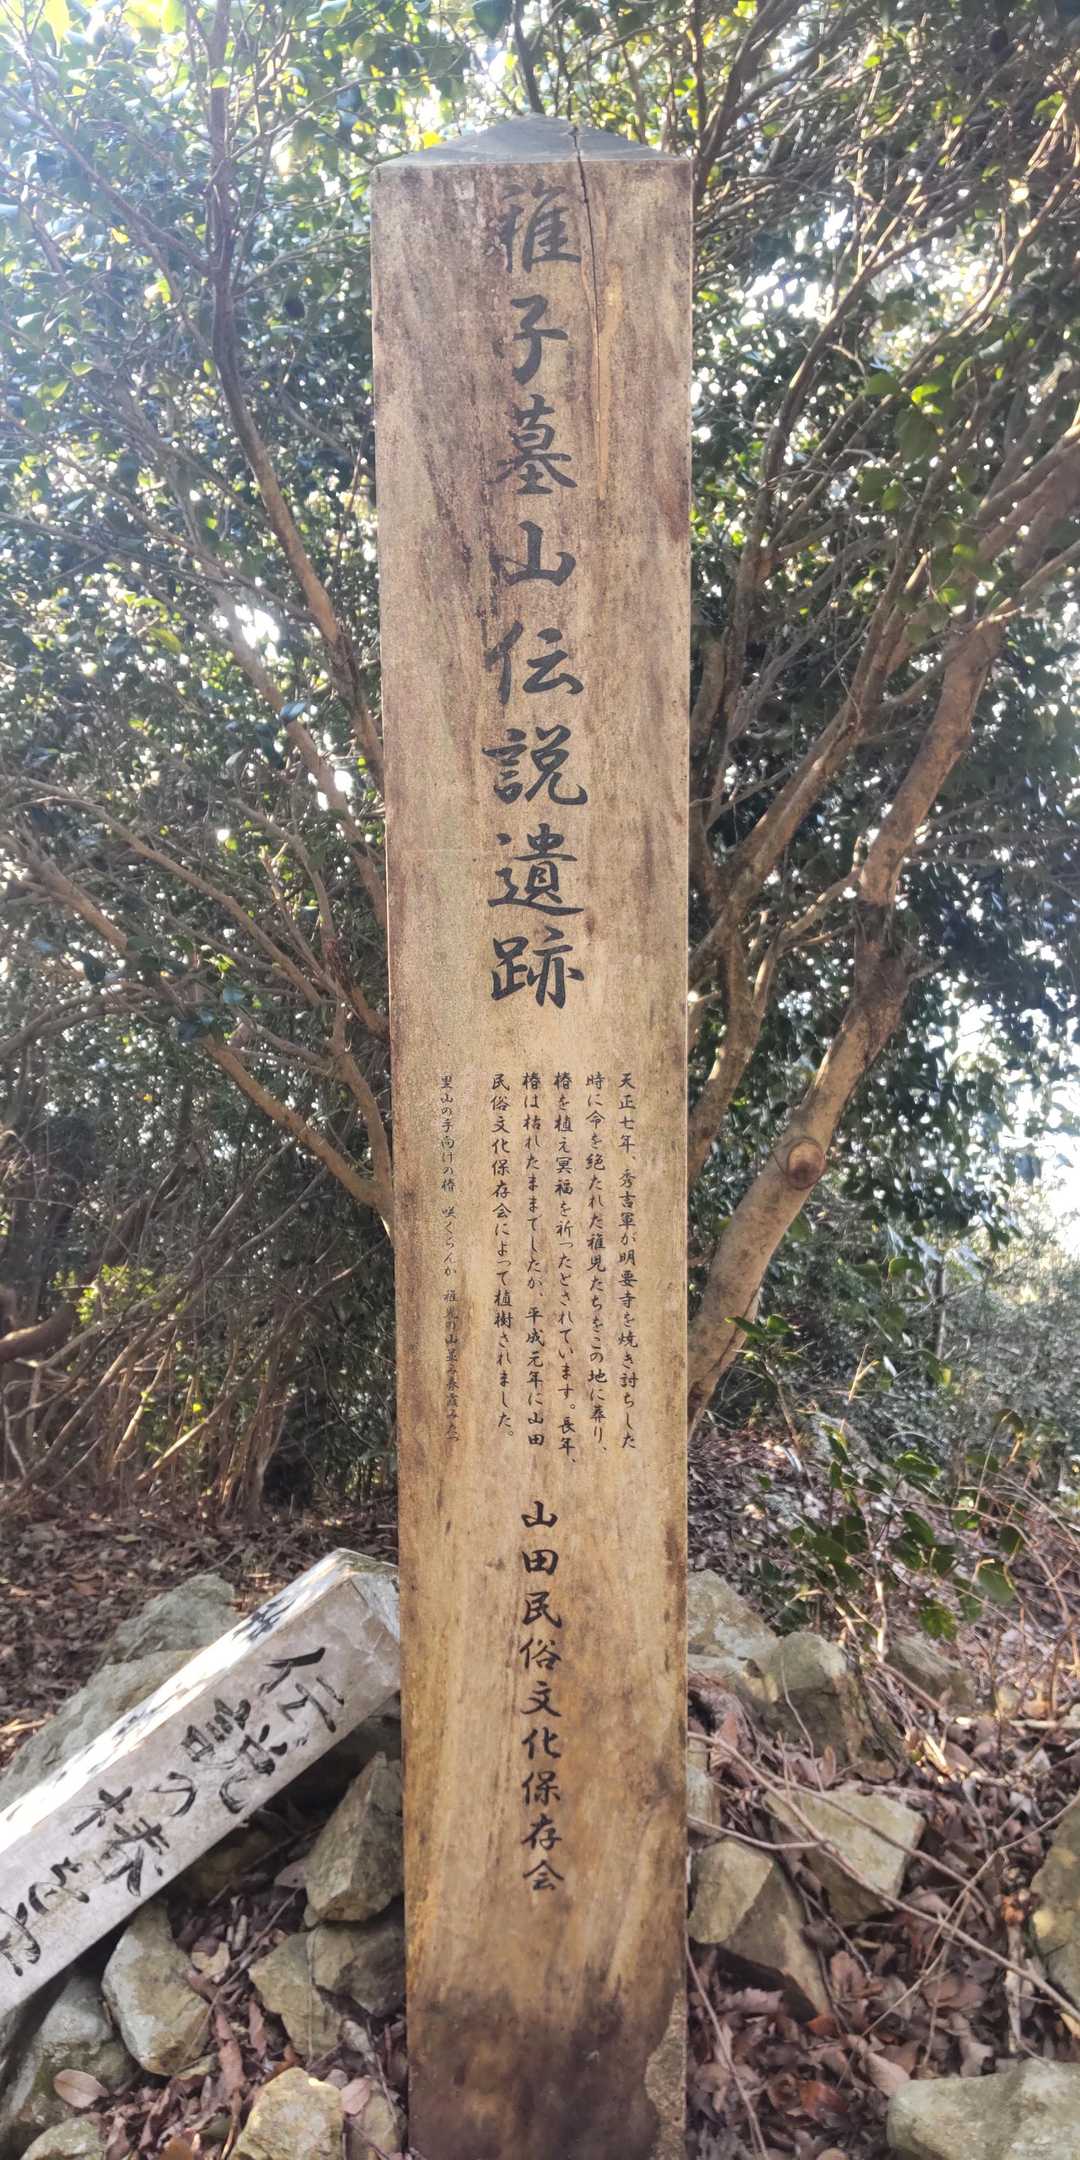 稚子墓山伝説遺跡
天正七年、秀吉軍が明要寺を焼き討ちした
時に命を絶たれた稚児たちをこの地に葬り、
椿を植え冥福を祈ったとされています。長年、
椿は枯れたままでしたが、平成元年に山田
民俗文化保存会によって植樹されました。
里山の手向けの椿 咲くらんか 稚児の山並み春霞みたつ
山田民俗文化保存会
伝説の椿